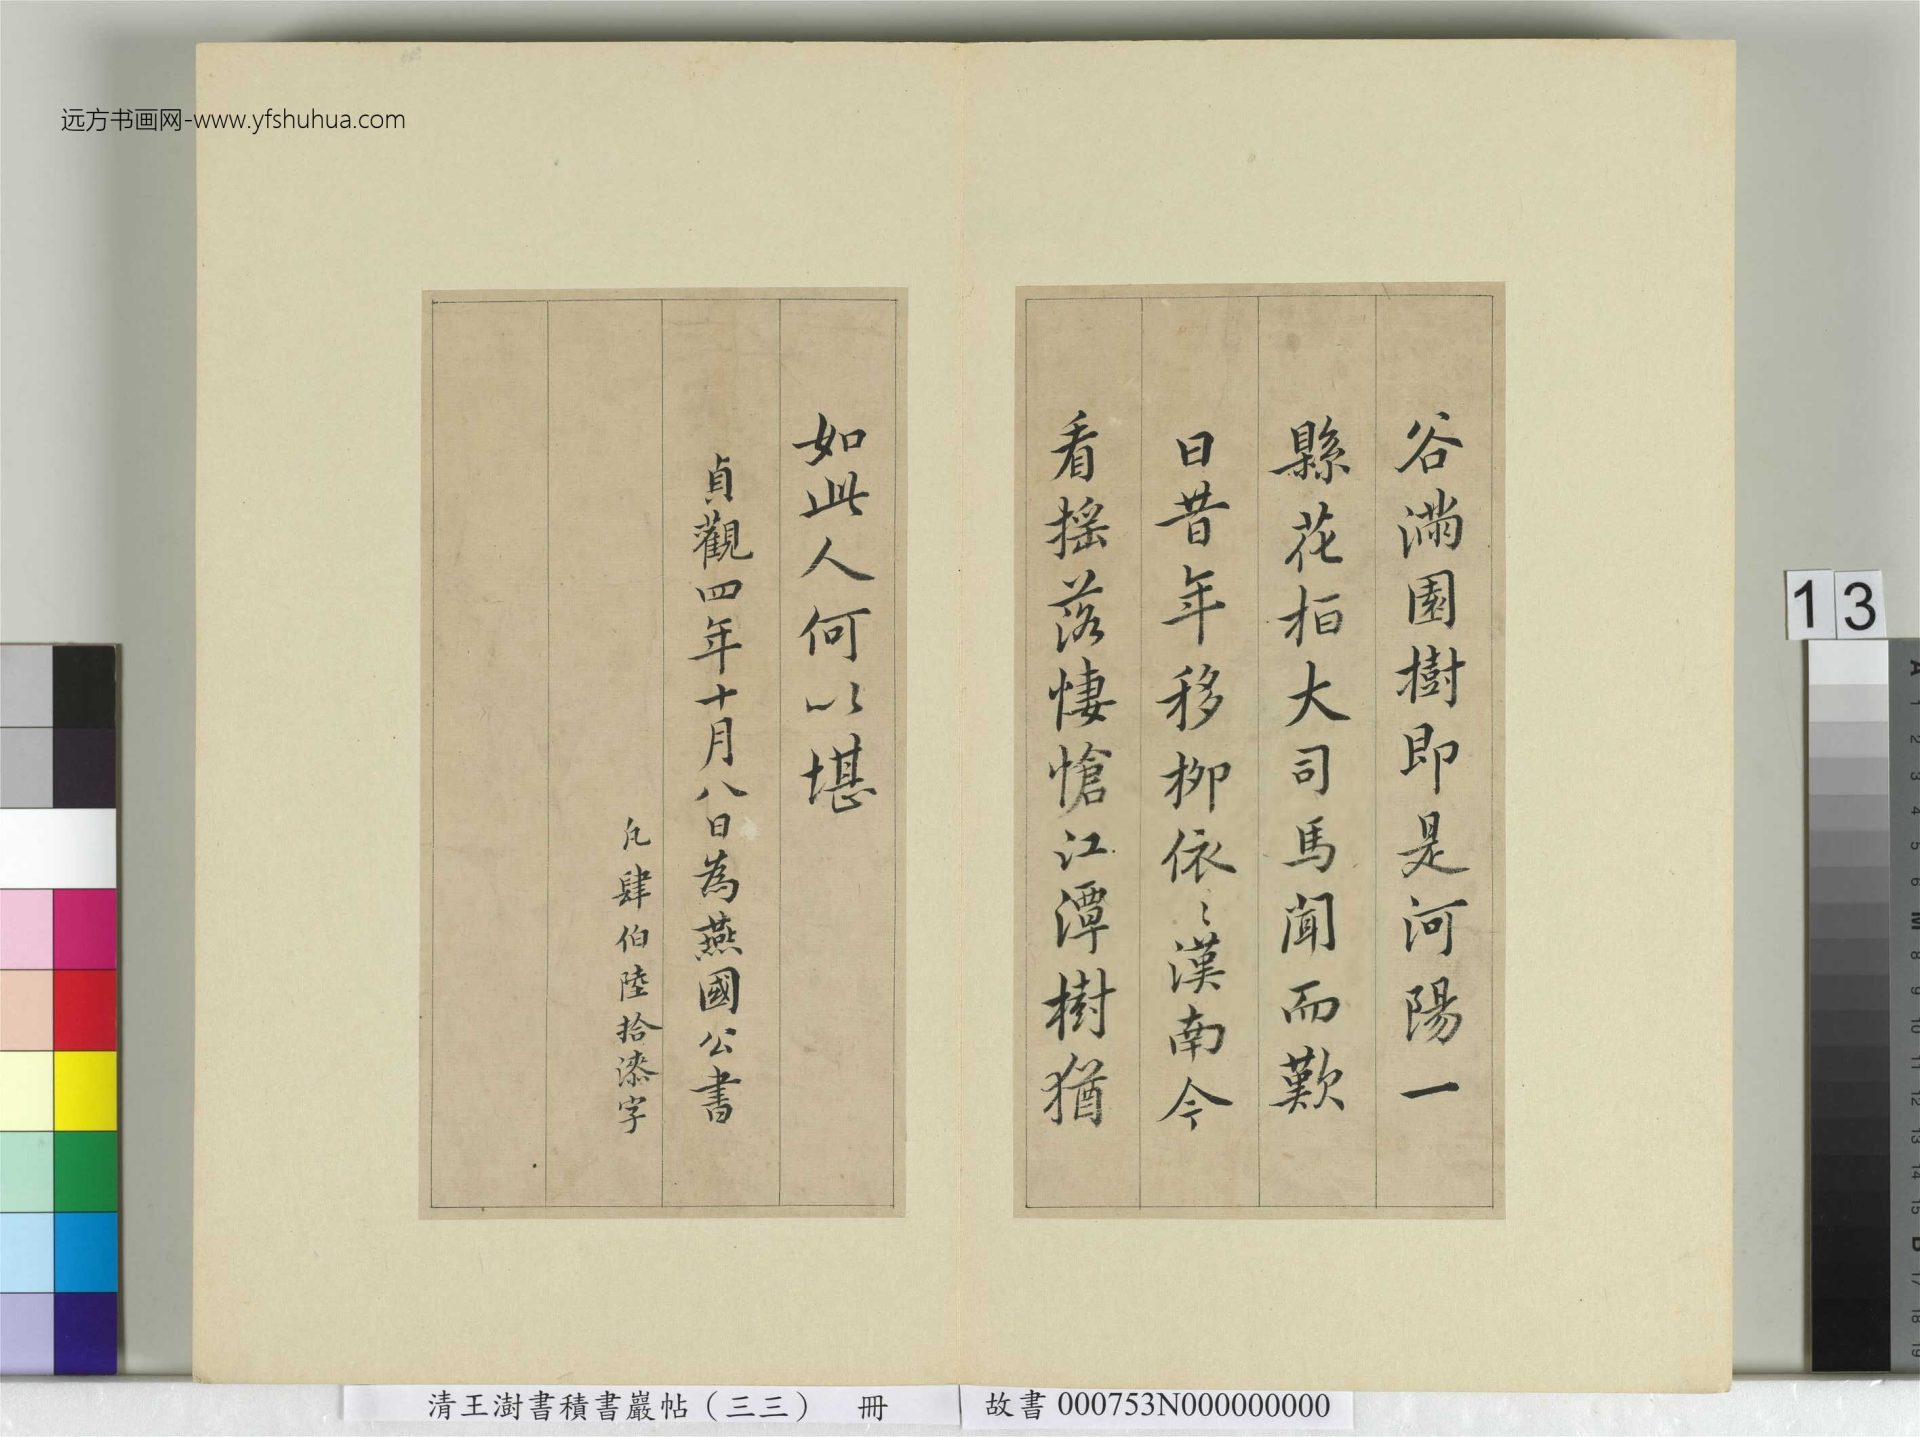 远方书画网-www.yfshuhua.com
谷滿園樹即是河陽一
縣花桓大司馬聞而歎
日昔年移柳依〻漢南今
看摇落悽愴江潭樹猶
如此人何以堪
貞觀四年十月八日為燕國公書
凡肆伯陸拾漆字
13
清王澍書積書巖帖（三三） 冊
故書 000753N000000000
A
1
2
3
4
5
6
M
8
9
10
11
12
13
14
15
B
17
18
19